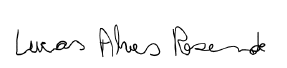 Lucas Alves Rosende